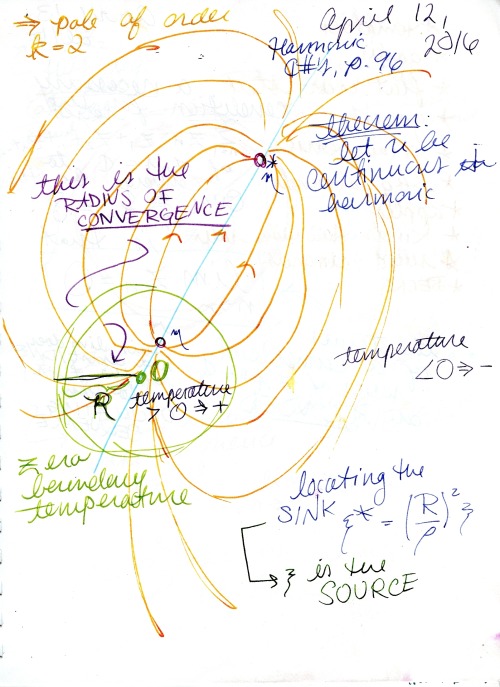 ⇒ pole of order
k=2
April 12,
2016
Harmonic
C#4, p. 96
theorem:
let u be
continuous
harmonic
this is the
RADIUS OF
CONVERGENCE
η*
η
O
R
temperature
> O ⇒ +
temperature
< O ⇒ -
Zero
boundary
temperature
locating the
SINK ξ* = (R/ρ)² ξ
ξ is the
SOURCE